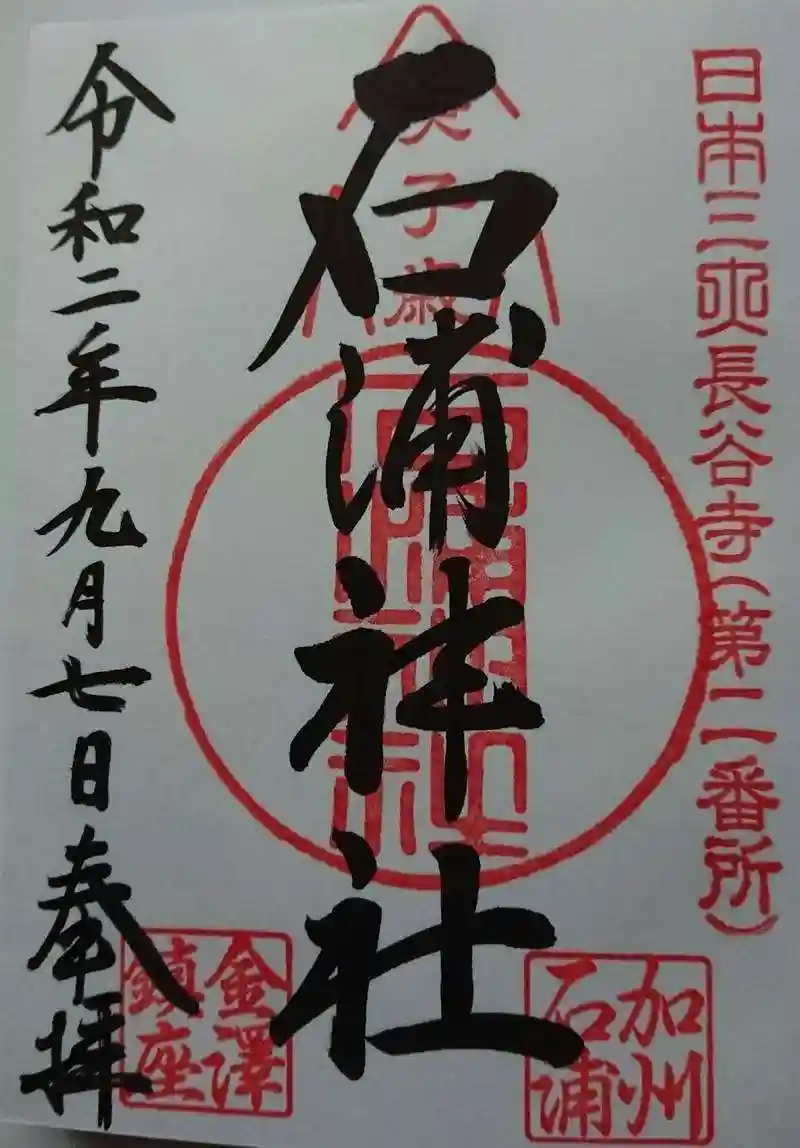 日本三大長谷寺(第二番所)
美子歳
石浦神社
石浦神社
加州
石浦
令和二年九月七日奉拝
金澤
鎮座